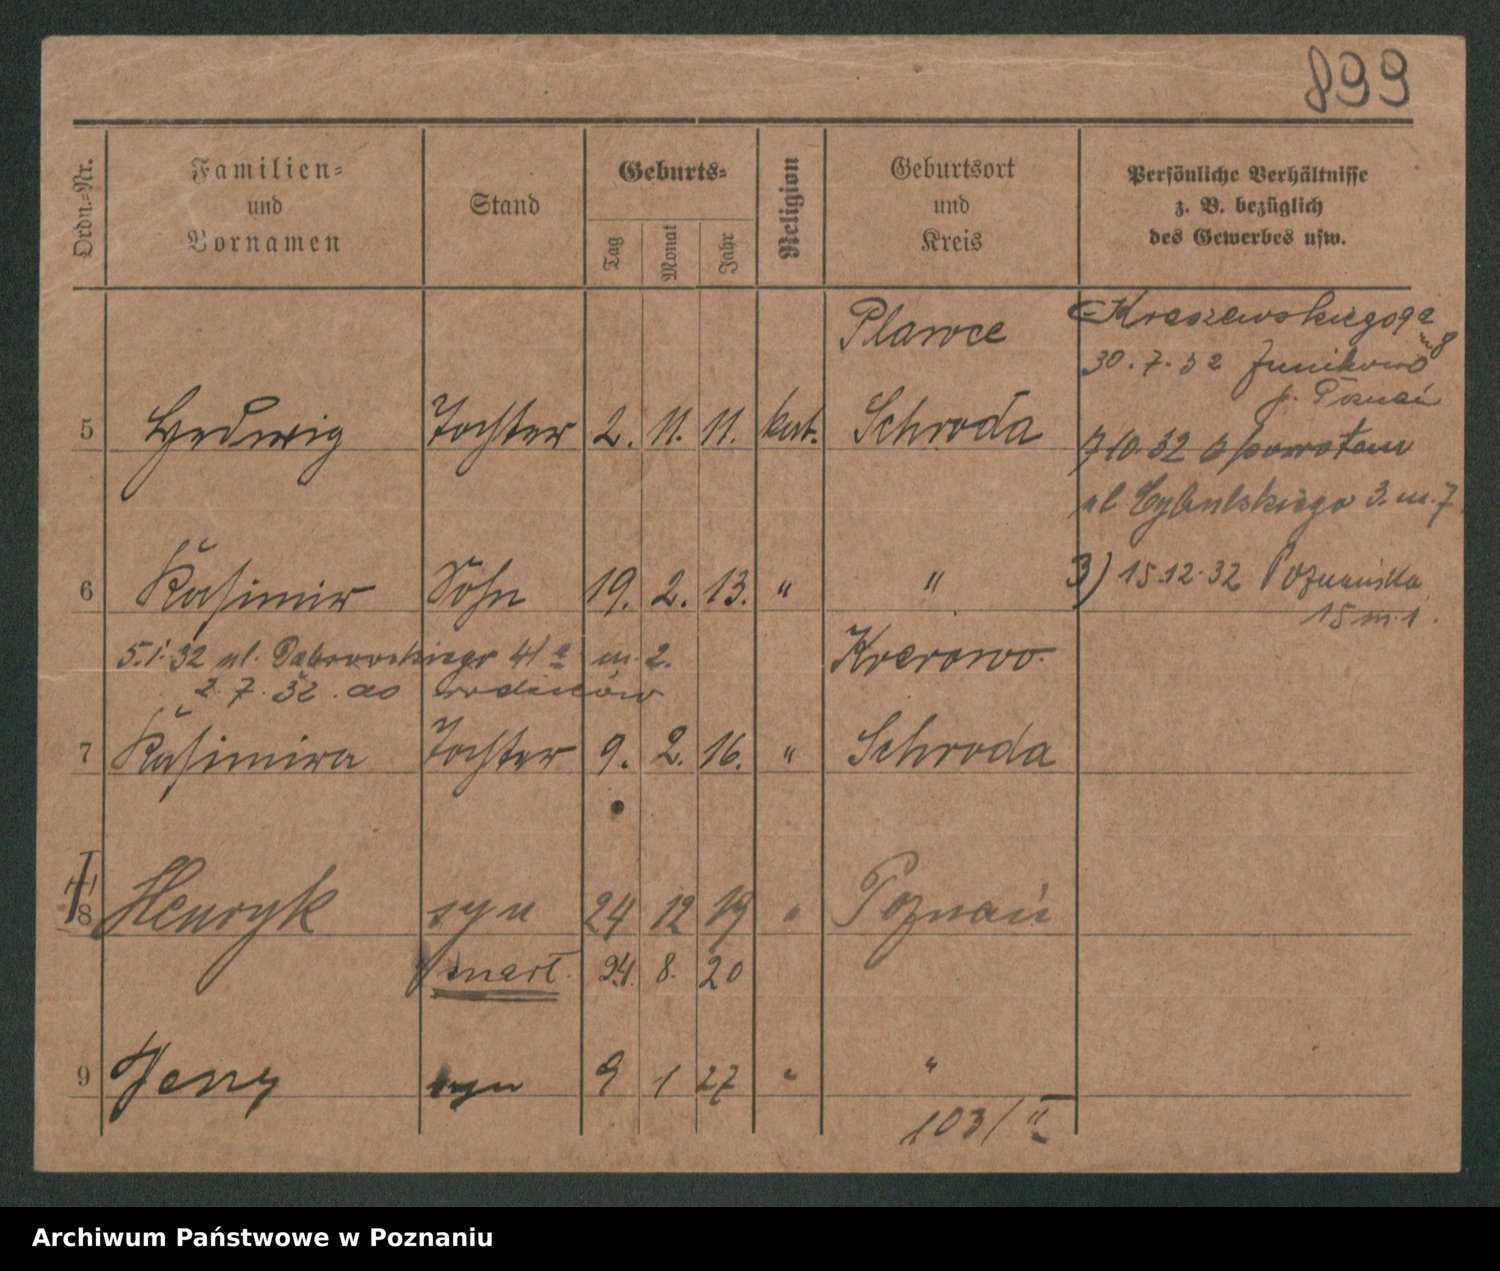 899
Ordn.-Nr.
Familien-
und
Vornamen
Stand
Geburts-
Tag
Monat
Jahr
Religion
Geburtsort
und
Kreis
Persönliche Verhältnisse
z. B. bezüglich
des Gewerbes usw.
Plawce
Kraszewskiego 9a
m 8
30.7.32 Junikowo
p. Poznań
5 Hedwig Tochter 2. 11. 11. kat. Schroda
7 10 32 z powrotem
ul Cybulskiego 3. m. 7
6 Kasimir Sohn 19. 2. 13. " "
3) 15.12.32 Poznańska
15 m. 1.
5.1.32 ul. Dąbrowskiego 41a m. 2.
Krerowo
2.7.32. do rodziców
7 Kasimira Tochter 9. 2. 16. " Schroda
8 Henryk syn 24 12 19 " Poznań
zmarł. 24. 8. 20
9 Jerzy syn 9 1 27 " "
103/II
Archiwum Państwowe w Poznaniu